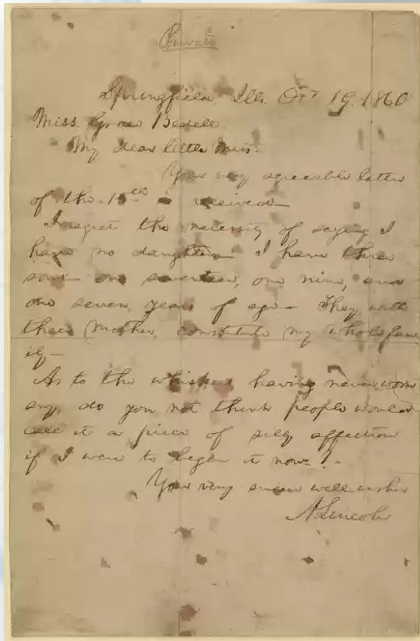 Private
Springfield, Ills. Oct 19. 1860
Miss. Grace Bedell
My dear little Miss.
Your very agreeable letter
of the 15th is received—
I regret the necessity of saying I
have no daughters— I have three
sons— one seventeen, one nine, and
one seven, years of age— They, with
their mother, constitute my whole fam
ily—
As to the whiskers, having never worn
any, do you not think people would
call it a piece of silly affection
if I were to begin it now?
Your very sincere well-wisher
A. Lincoln